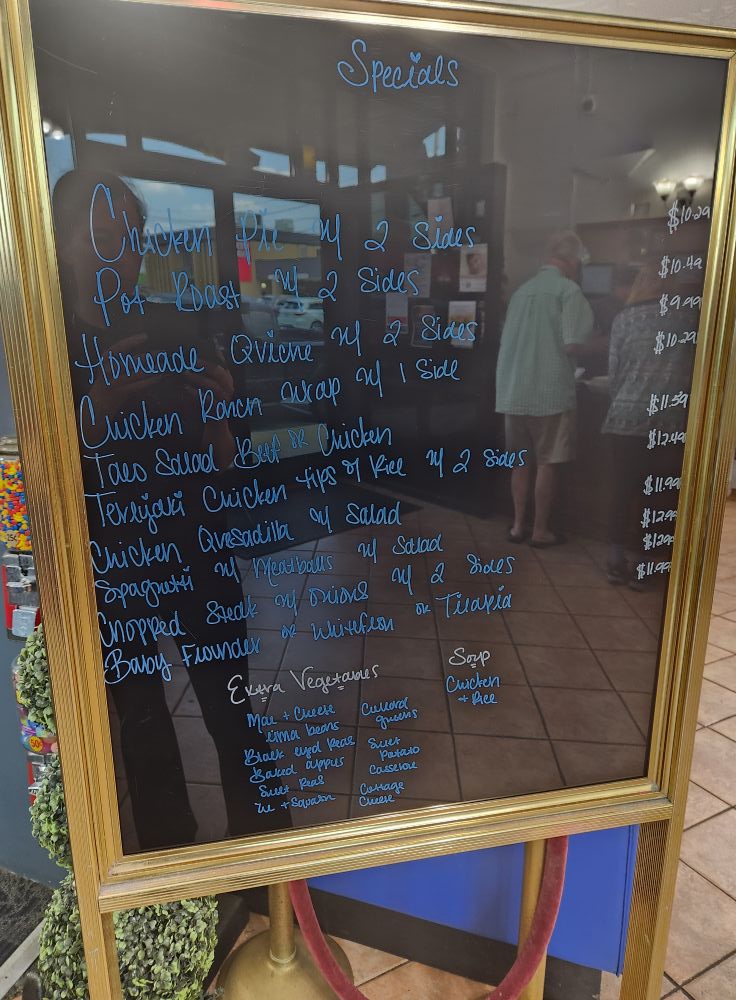 Specials
Chicken Pie w/ 2 Sides $10.29
Pot Roast w/ 2 Sides $10.49
Homeade Quiche w/ 2 Sides $9.99
Chicken Ranch Wrap w/ 1 Side $10.29
Taco Salad Beef or Chicken $11.59
Tereyaki Chicken tips w/ Rice w/ 2 Sides $12.49
Chicken Quesadilla w/ Salad $11.99
Spaghetti w/ Meatballs w/ Salad $12.99
Chopped Steak w/ onions w/ 2 Sides $12.99
Baby Flounder or Whitefish or Tilapia $11.99
Extra Vegetables
Mac + Cheese
Lima beans
Black eyed Peas
Baked apples
Sweet Peas
+ Squash
Collard
greens
Sweet
Potato
Casserole
Cottage
Cheese
Soup
Chicken
+ Rice
25¢
50¢